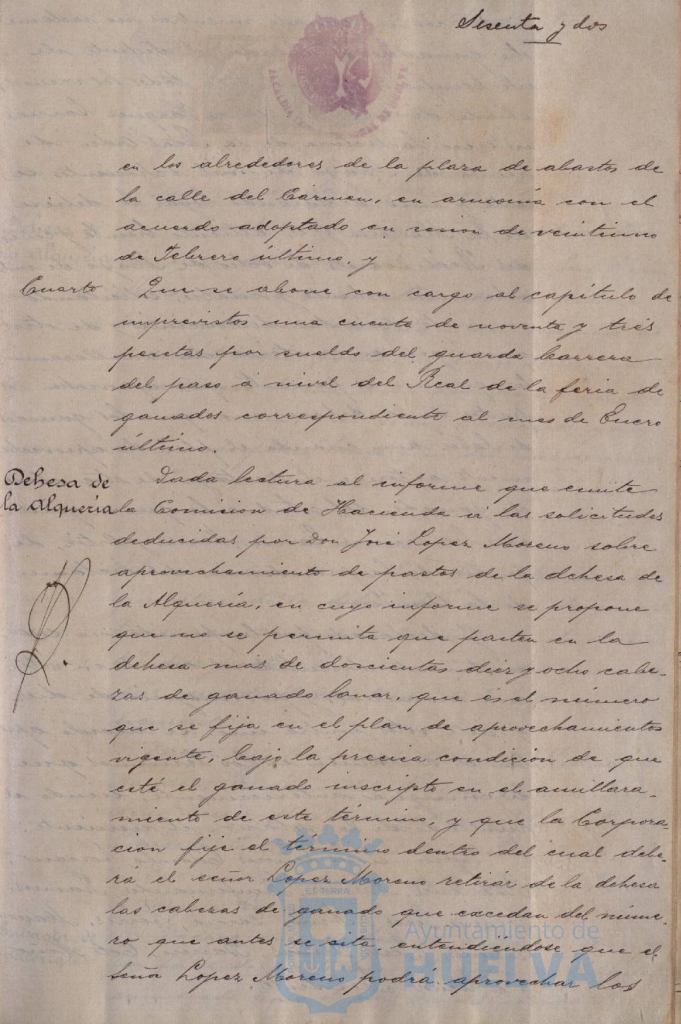 Sesenta y dos
en los alrededores de la plaza de abastos de
la calle del Cármen, en armonía con el
acuerdo adoptado en sesion de veintiuno
de Febrero último, y
Cuarto Que se abone con cargo al capítulo de
imprevistos una cuenta de noventa y tres
pesetas por sueldo del guarda barrera
del paso á nivel del Real de la feria de
ganados correspondiente al mes de Enero
último.
Dehesa de
la Alquería
Dada lectura al informe que emite
la Comision de Hacienda á las solicitudes
deducidas por Don José Lopez Moreno sobre
aprovechamiento de pastos de la dehesa de
la Alquería, en cuyo informe se propone
que no se permita que pasten en la
dehesa más de doscientas diez y ocho cabe-
zas de ganado lanar, que és el número
que se fija en el plan de aprovechamientos
vigente, bajo la precisa condicion de que
esté el ganado inscripto en el amillara-
miento de este término, y que la Corpora-
cion fije el término dentro del cual debe-
rá el señor Lopez Moreno retirár de la dehesa
las cabezas de ganado que excedan del núme-
ro que antes se cita, entendiendose que el
señor Lopez Moreno podrá aprovechar los
Ayuntamiento de
HUELVA